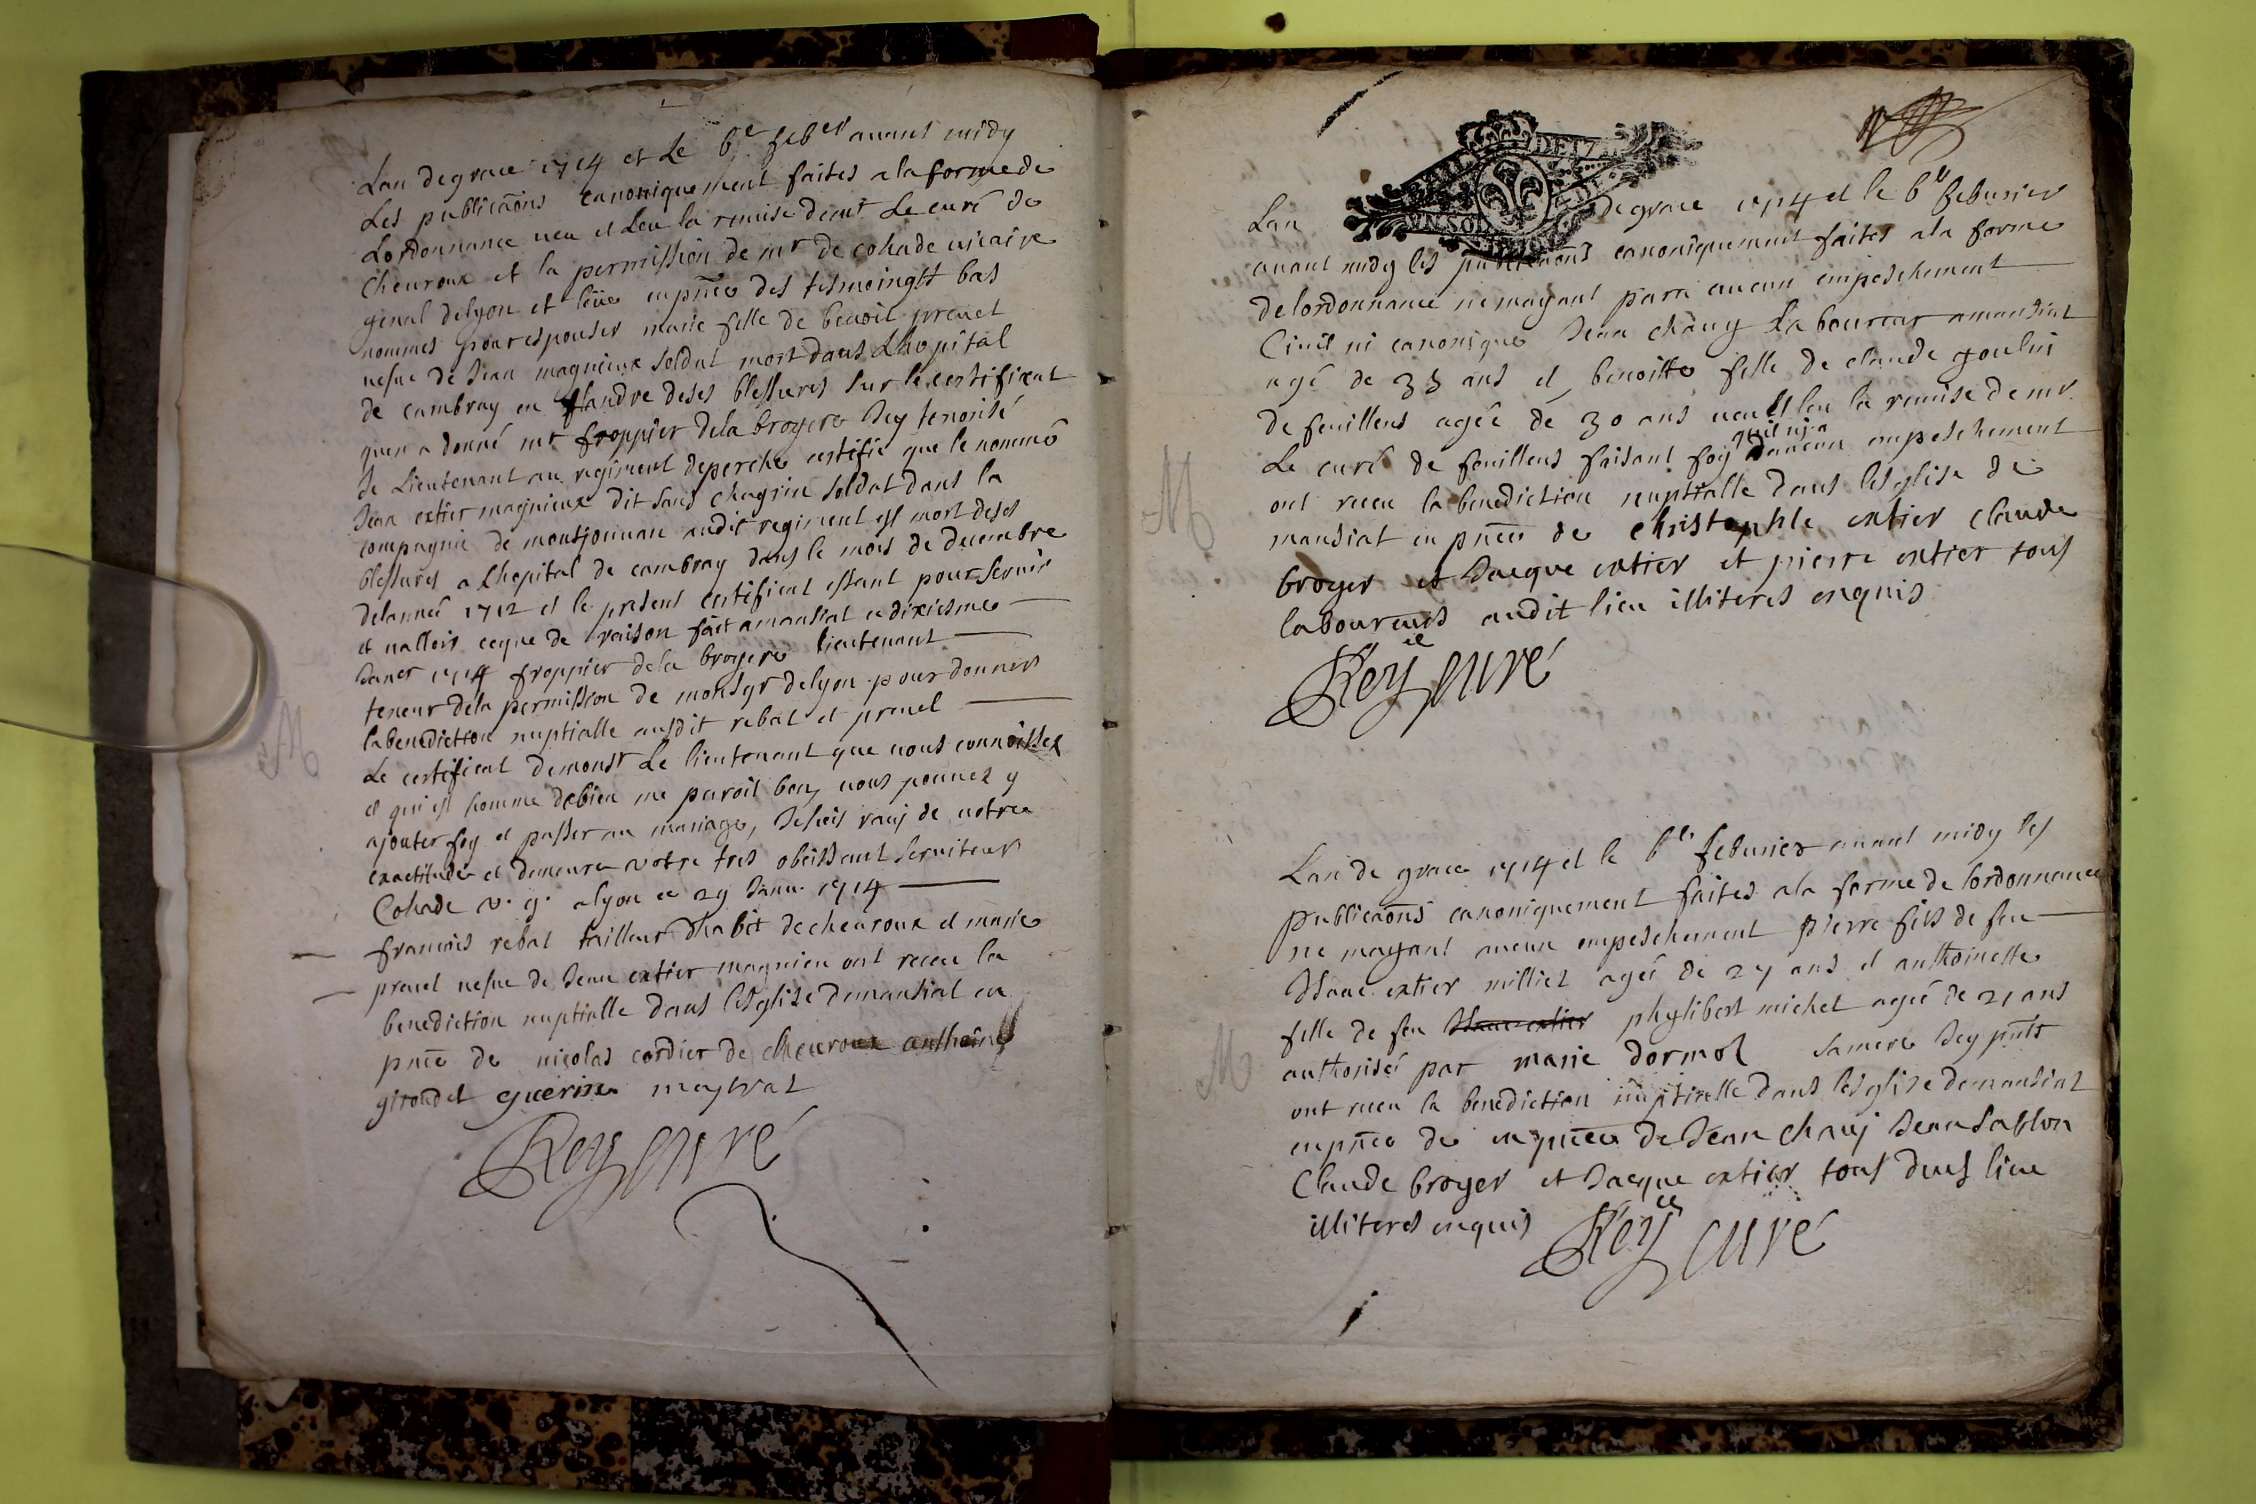 Lan de grace 1714 et Le 6e feber auant midy
Les publicãons canoniquement faites a la forme de
Lordonnance veu et Leu la remise de mr Le curé de
Cheuroux et la permission de mr de cohade vicaire
genal de lyon et leüe en pñce des tesmoingtt bas
nommes pour espouser marie fille de benoit preuel
vefue de Jean magnieux soldat mort dans Lhopital
de cambray en flandre de ses blessures sur le certificat
quen a donné mr froppier de la broyere Icy tenorisé
Je Lieutenant au regiment de perche certifie que le nommé
Jean extier magnieux dit sans chagrin soldat dans la
compagnie de montjouuan audit regiment est mort de ses
blessures a Lhopital de cambray dans le mois de decembre
delanneé 1712 et le present certificat estant pour seruir
et valloir ceque de raison fait a mansiat ce dixiesme
Janer 1714 froppier de la broyere lieutenant
teneur de la permission de monsgr de lyon pour donner
la benediction nuptialle ausdit rebat et preuel
Le certificat de monsr Le lieutenant que vous connoissez
et qui est homme de bien me paroit bon, vous pouuez y
ajouter foy et passer au mariage, Je suis rauj de votre
exactitude et demeure votre tres obeissant seruiteur
Cohade v. g. a lyon ce 29 Janu. 1714
francois rebat tailleur dhabit de cheuroux et marie
preuel vefue de Jean extier magnieu ont receu la
benediction nuptialle dans lesglise de mansiat en
pñce de nicolas cordier de cheuroux anthoine
giroudet guerin maystrat
Rey curé
Lan de grace 1714 et le 6e feburier
auant midy les publicãons canoniquement faites a la forme
de lordonnance ne mayant paru aucun empeschement
Ciuil ni canonique Jean chany Laboureur a mansiat
agé de 35 ans et benoitte fille de claude goulin
de feuillens ageé de 30 ans veu et leu la remise de mr
Le curé de feuillens faisant foy quil ny a aucun empeschement
ont receu la benediction nuptialle dans lesglise de
mansiat en pñce de Christophle extier claude
broyer et Jacque extier et pierre extier tous
laboureurs audit lieu illiteres enquis
Rey curé
Lan de grace 1714 et le 6e feburier auant midy les
publicãons canoniquement faites a la forme de lordonnance
ne mayant aucun empeschement pierre fils de feu
Isaac extier milliet ageé de 27 ans et anthoinette
fille de feu Isaac extier phylibert michet ageé de 21 ans
authoriseé par marie dormol sa mere Icy pnte
ont receu la benediction nuptialle dans lesglise de mansiat
en pñce de en pñce de Jean chanj Jean sablon
Claude broyer et Jacque extier tous dud lieu
illiteres enquis Rey curé
M
M
M